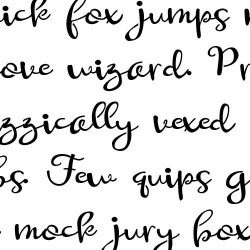 ick fox jumps
ove wizard. Pr
zzically vexed
bs. Few quips g
mock jury box